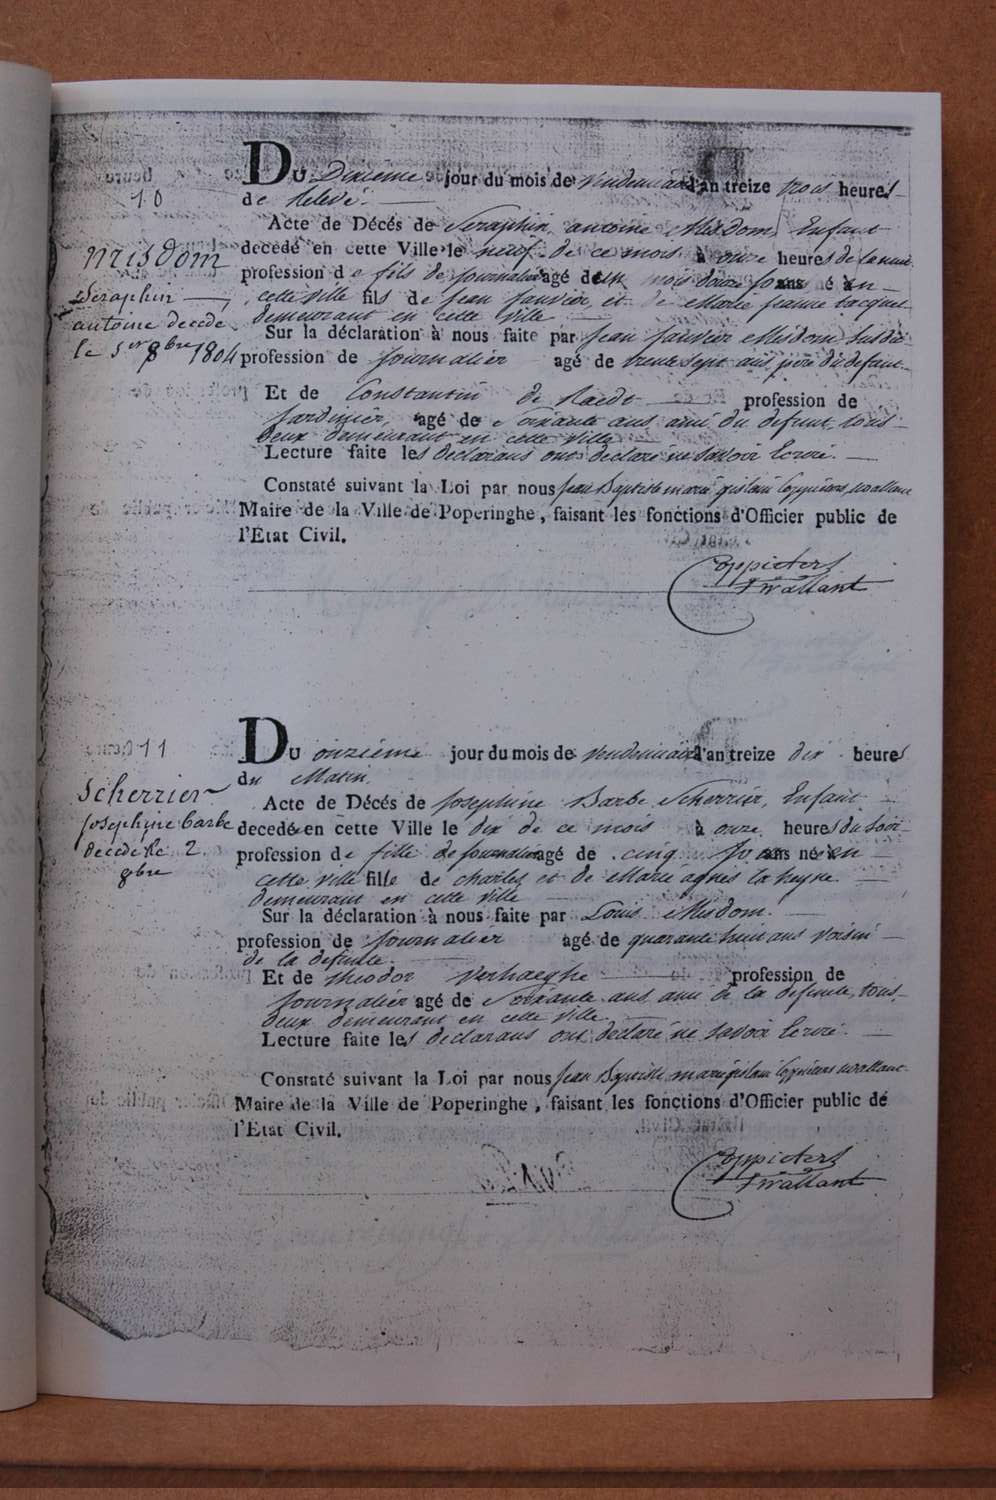 10
Misdom
Seraphin
antoine decede
le 1er 8bre 1804
Du Dixieme jour du mois de vendemiaire d'an treize trois heures
de Relevé.
Acte de Décés de Seraphin antoine Misdom, Enfant
decedé en cette Ville le neuf de ce mois à onze heures de la nuit
profession de fils de journalier agé de un mois douze jours né en
cette ville fils de jean janvier et de Marie jeanne
demeurant en cette ville
Sur la déclaration à nous faite par jean janvier Misdom susdit
profession de journalier agé de trente sept ans, pere du defunt.
Et de Constantin de Raedt profession de
jardinier, agé de soixante ans ami du defunt, tous
deux demeurant en cette ville
Lecture faite les declarans ont declaré ne savoir Ecrire.
Constaté suivant la Loi par nous jean Baptiste marie gislain Coppieters wallant
Maire de la Ville de Poperinghe, faisant les fonctions d'Officier public de
l'Etat Civil.
Coppieters
Twallant
11
Scherrier
josephine barbe
decede le 2
8bre
Du onzième jour du mois de vendemiaire d'an treize dix heures
du Matin
Acte de Décés de josephine Barbe Scherrier, Enfant
decedée en cette Ville le dix de ce mois à onze heures du soir
profession de fille de journalier agé de cinq jours né en
cette ville fille de charles et de Marie agnes la huyse
demeurant en cette ville
Sur la déclaration à nous faite par Louis Misdom.
profession de journalier agé de quarante huit ans voisin
de la defunte.
Et de theodor verhaeghe profession de
journalier agé de soixante ans ami de la defunte, tous
deux demeurant en cette ville.
Lecture faite les declarans ont declaré ne savoir Ecrire.
Constaté suivant la Loi par nous jean Baptiste marie gislain Coppieters wallant
Maire de la Ville de Poperinghe, faisant les fonctions d'Officier public de
l'Etat Civil.
Coppieters
Twallant